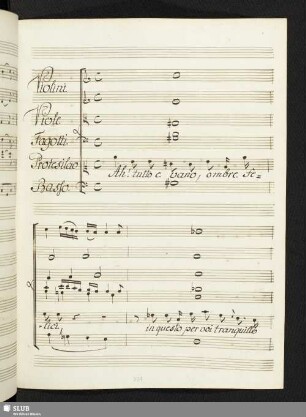 Violini
Viole
Fagotti
Protesilao
Ah! tutto è vano, ombre fe=
Basso
=lici,
in questo per voi tranquillo
SLUB